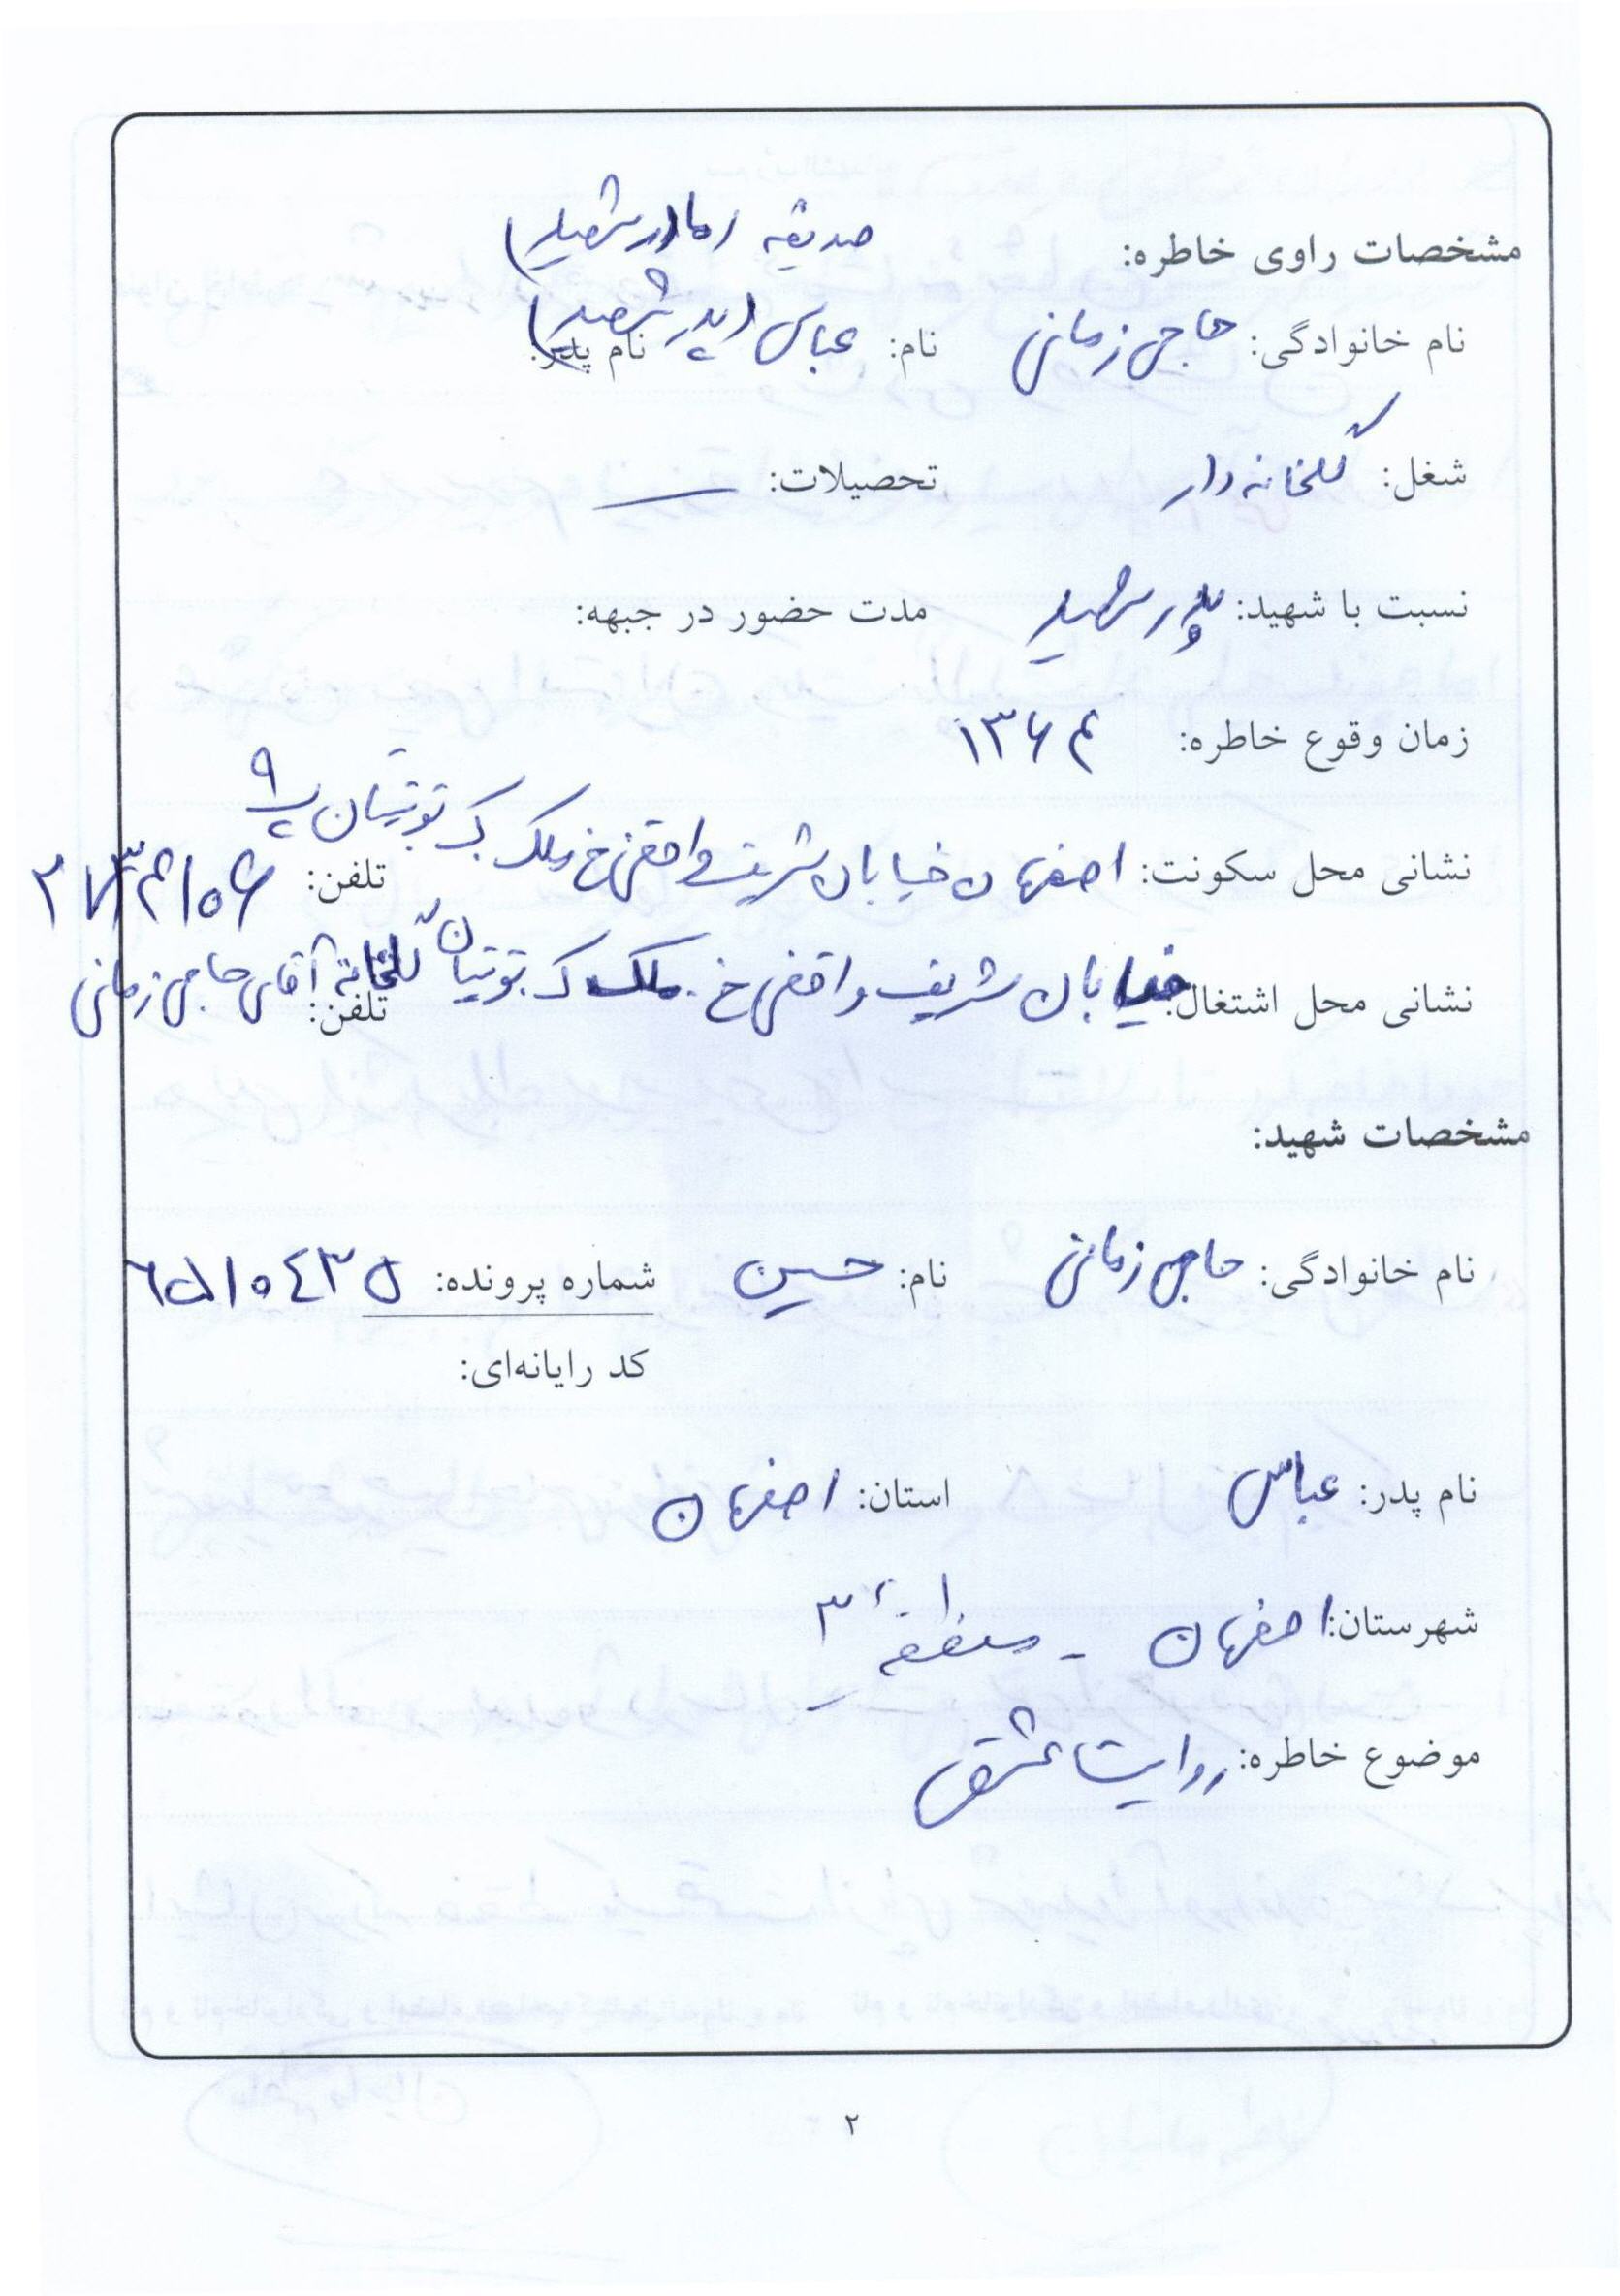 صدیقه (مادر شهید)
مشخصات راوی خاطره:
نام خانوادگی: حاجی زمانی نام: عباس (پدر شهید) نام پدر:
شغل: گلخانه دار تحصیلات: ــ
نسبت با شهید: پدر شهید مدت حضور در جبهه:
زمان وقوع خاطره: ۱۳۶۴
نشانی محل سکونت: اصفهان خیابان شریف واقفی خ ملک ک توتیان پ ۹ تلفن:
نشانی محل اشتغال: خیابان شریف واقفی خ. ملک ک توتیان گلخانه آقای حاجی زمانی تلفن:
مشخصات شهید:
نام خانوادگی: حاجی زمانی نام: حسین شماره پرونده:
کد رایانه‌ای:
نام پدر: عباس استان: اصفهان
شهرستان: اصفهان - منطقه ۳
موضوع خاطره: روایت عشق
۲